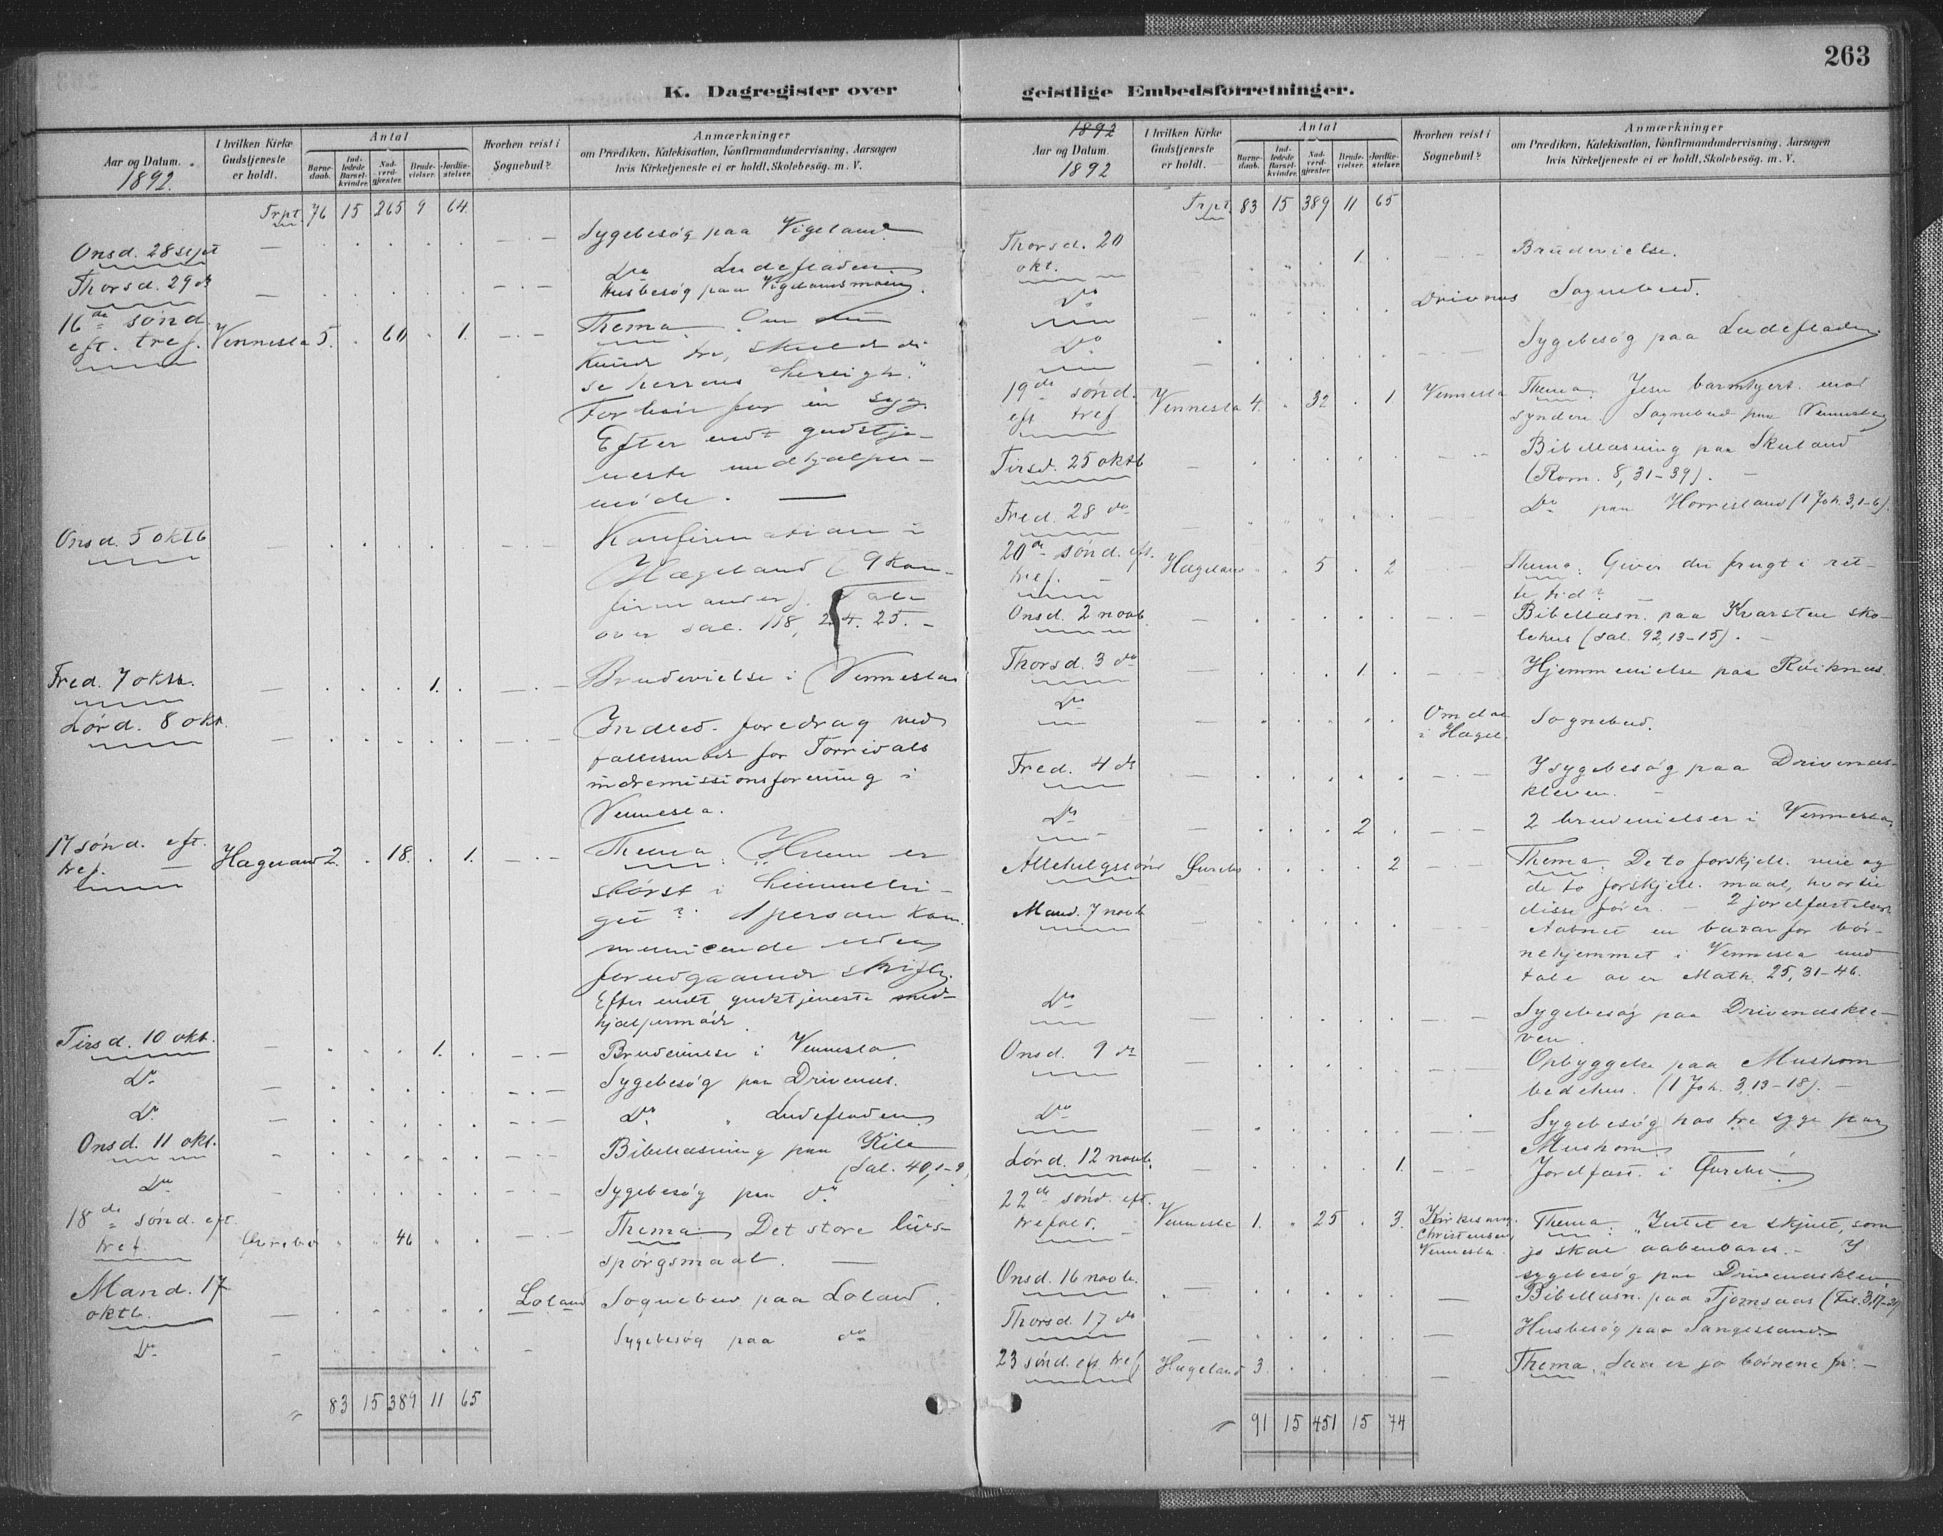 263
K. Dagregister over
geistlige Embedsforretninger.
Aar og Datum.
1892.
I hvilken Kirke
Gudstjeneste
er holdt.
Antal
Barne-
daab.
Ind-
ledede
Barsel-
kvinder.
Nad-
verd-
gjæster.
Brude-
vielser.
Jordfæ-
stelser.
Hvorhen reist i
Sognebud?
Anmærkninger
om Prædiken, Katekisation, Konfirmandundervisning, Aarsagen
hvis Kirketjeneste ei er holdt, Skolebesøg. m. V.
Trpt. 76 15 265 9 64
Onsd. 28 sept — Sygebesøg paa Vigeland
Thorsd. 29 do — Do Ludefladen
Husbesøg paa Vigelandsmoen.
16de sønd.
eft. tref. Vennesla 5. 60 1. Thema. Om
kunde tro, skulde du
se herrens herligh."
Forbøn for en syg.
Efter endt gudstje-
neste medhjælper-
møde. —
Onsd. 5 oktb — Konfirmation i
Hægeland (9 kon-
firmander). Tale
over sal. 118, 24. 25. —
Fred. 7 oktb. — 1. Brudevielse i Vennesla
Lørd. 8 okt. — Indled. foredrag ved
fællesmøde for Torridals
indremissionsforening i
Vennesla.
17 sønd. eft.
tref. — Hægeland 2. 18. 1. Thema: Hvem er
størst i himmeleri-
get? 1 person kom-
municende uden
forudgaaende skrift.
Efter endt gudstjeneste med-
hjælpermøde.
Tirsd. 10 okt. — 1. Brudevielse i Vennesla.
Do — Sygebesøg paa Drivenes.
Do — Do " Ludefladen
Onsd. 11 okt. — Bibellæsning paa Kile
(sal. 40, 1-9)
Do — Sygebesøg paa do
18de sønd. eft.
tref. Øvrebø 46 Thema: Det store livs-
spørgsmaal. —
Mand. 17
oktb. — Loland Sognebud paa Loland.
Do — Sygebesøg paa do
83 15 389 11 65
1892
Aar og Datum.
1892
I hvilken Kirke
Gudstjeneste
er holdt.
Antal
Barne-
daab.
Ind-
ledede
Barsel-
kvinder.
Nad-
verd-
gjæster.
Brude-
vielser.
Jordfæ-
stelser.
Hvorhen reist i
Sognebud?
Anmærkninger
om Prædiken, Katekisation, Konfirmandundervisning, Aarsagen
hvis Kirketjeneste ei er holdt, Skolebesøg. m. V.
Trpt. 83 15 389 11 65
Thorsd. 20
okt. — 1. Brudevielse.
Do Drivenes Sognebud.
Do — Sygebesøg paa Ludefladen.
19de sønd.
eft tref Vennesla 4. 32 1 Vennesla Thema: Jesu barmhjert. mod
syndere. Sognebud paa Vennesla
Tirsd. 25 oktb — Bibellæsning paa Skuland
(Rom. 8, 31-39). —
Fred. 28 do — Do paa Horrisland (1 Joh. 3, 1-6).
20de sønd. eft.
tref. — Hægeland 5 2 Thema: Giver du frugt i ret-
te tid? —
Onsd. 2 novb. — Bibellæsn. paa Kvarsten sko-
lehus (sal. 92, 13-15). —
Thorsd. 3 do — 1. Hjemmevielse paa Røiknes.
Do — Omdal
i Hægel. Sognebud.
Fred. 4 do — Y sygebesøg paa Drivenes-
kleven. —
Do — 2 2 brudevielser i Vennesla
Allehelgssønd Øvrebø 2 Thema: De to forskjell. veie og
de to forskjell. maal, hvortil
disse fører. — 2 jordfæstelser
Mand. 7 novb — Aabnet en bazar for bør-
nehjemmet i Vennesla med
tale over Math. 25, 31-46.
Do Sygebesøg paa Driveneskle-
ven.
Onsd. 9 do — Opbyggelse paa Mushom
bedehus. (1 Joh. 3, 13-18). —
Do — Sygebesøg hos tre syge paa
Mushom.
Lørd. 12 novb. 1. Jordfæst. i Øvrebø
22de sønd. eft.
trefold. — Vennesla 1. 25 3. Kirkesang.
Christensen,
Vennesla. Thema: "Intet er skjult, som
jo skal aabenbares. — Y
sygebesøg paa Driveneskleven.
Onsd. 16 novb. — Bibellæsn. paa Tjomsaas (Fil. 3, 17-21)
Thorsd. 17 do — Husbesøg paa Sangesland
23 sønd. eft tref Hægeland 3. — Thema: "Saa er jo børnene fri. —
91 15 451 15 74